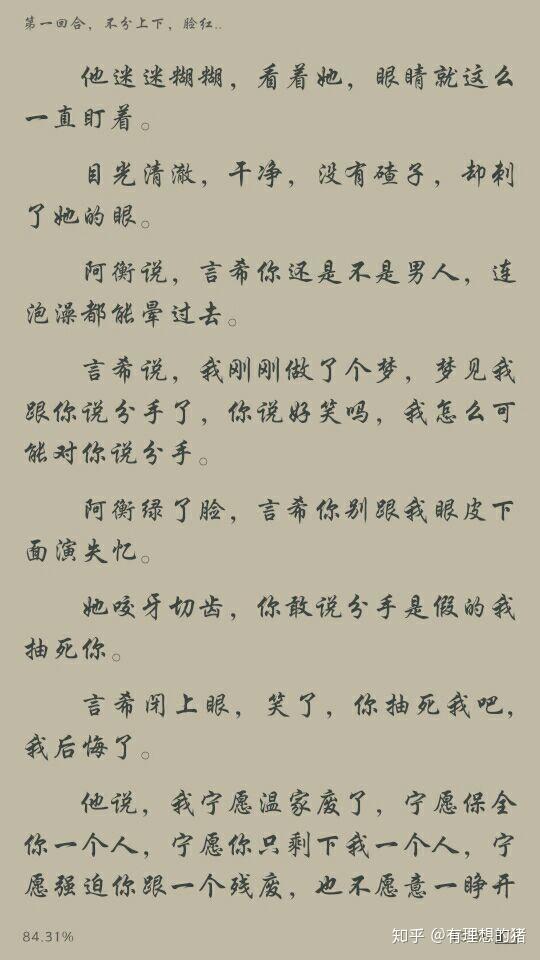 第一回合，不分上下，脸红..
他迷迷糊糊，看着她，眼睛就这么
一直盯着。
目光清澈，干净，没有碴子，却刺
了她的眼。
阿衡说，言希你还是不是男人，连
泡澡都能晕过去。
言希说，我刚刚做了个梦，梦见我
跟你说分手了，你说好笑吗，我怎么可
能对你说分手。
阿衡绿了脸，言希你别跟我眼皮下
面演失忆。
她咬牙切齿，你敢说分手是假的我
抽死你。
言希闭上眼，笑了，你抽死我吧，
我后悔了。
他说，我宁愿温家废了，宁愿保全
你一个人，宁愿你只剩下我一个人，宁
愿强迫你跟一个残废，也不愿意一睁开
84.31%
知乎 @有理想的猪